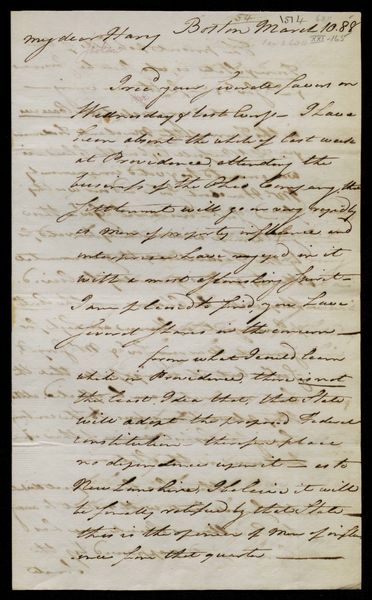 54 1514
my dear Harry Boston March 10. 88
I rec'd your favors on
Wednesday & last Eve'g - I have
been absent the whole of last week
at Providence, attending the
business of the Ohio Company, the
settlements will go on very rapidly
as Men of property influence and
enterprise have engaged in it
with a most astonishing spirit -
I am pleased to find you have
several shares in the concern -
from what I could learn
while in Providence, there is not
the least Idea that, that State
will adopt the proposed Federal
constitution - therefore place
no dependence upon it - as to
New Hampshire, I believe it will
be finally ratified by that State
this is the opinion of Men of influ
ence from that quarter -